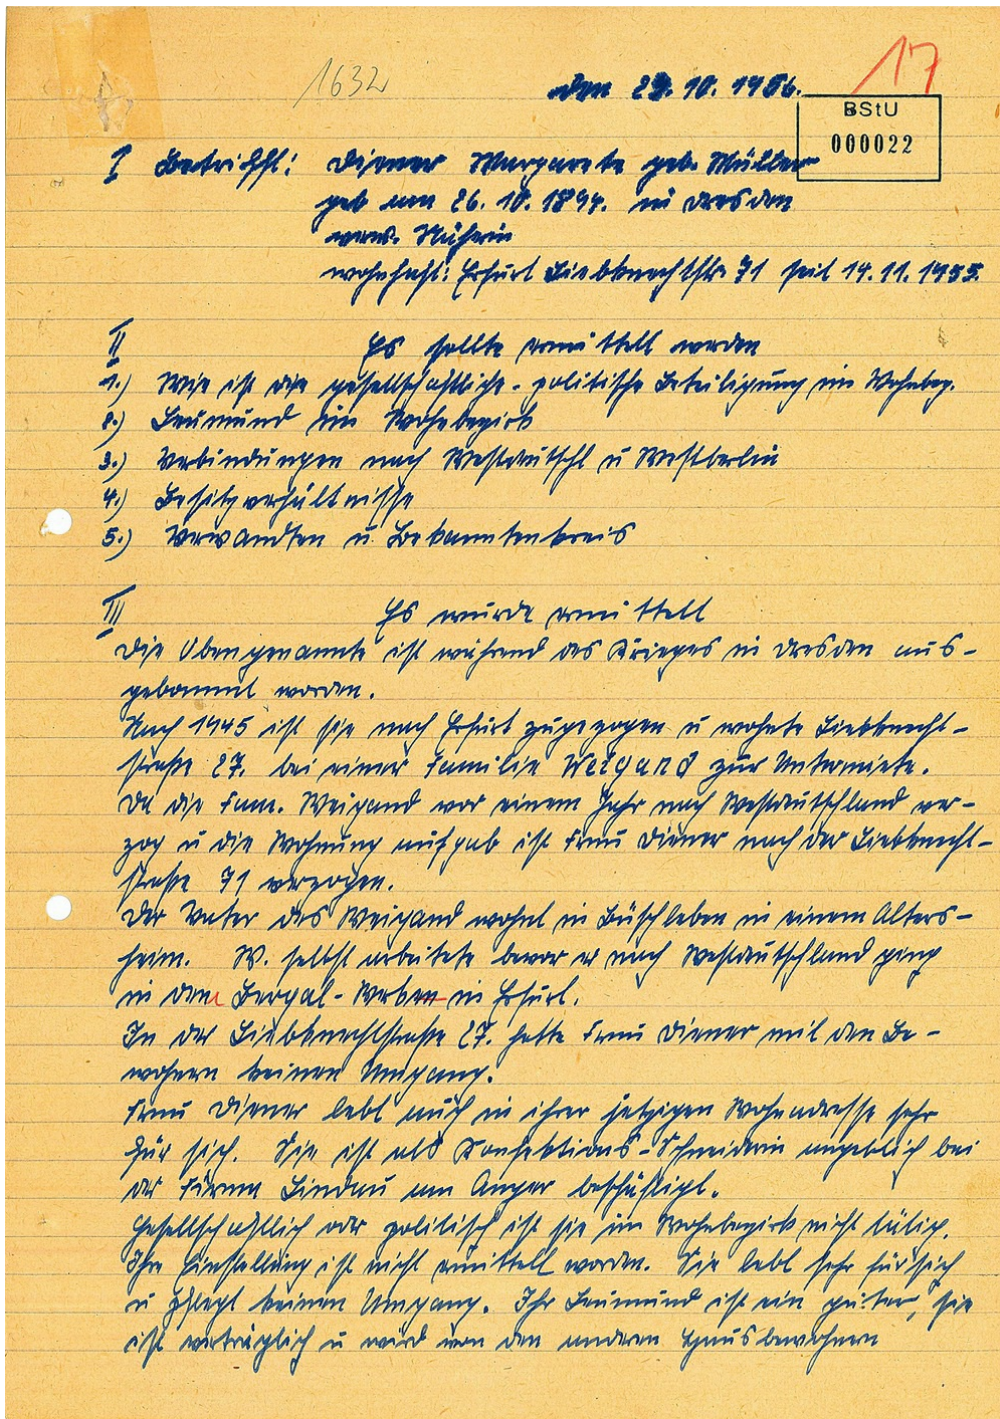 1632
17
den 29. 10. 1956.
BStU
000022
I Betrifft: Diener Margarete geb. Müller
geb am 26. 10. 1894. in Dresden
verw. Näherin
wohnhaft: Erfurt Liebknechtstr. 71 seit 14. 11. 1955.
II Es sollte ermittelt werden
1.) Wie ist die gesellschaftliche - politische Beteiligung im Wohnbez.
2.) Leumund im Wohnbezirk
3.) Verbindungen nach Westdeutschl u Westberlin
4.) Besitzverhältnisse
5.) Verwandten u. Bekanntenkreis
III Es wurde ermittelt
Die Obengenannte ist während des Krieges in Dresden aus-
gebommt worden.
Nach 1945 ist sie nach Erfurt zugezogen u wohnte Liebknecht-
straße 27. bei einer Familie Weigand zur Untermiete.
Da die Fam. Weigand vor einem Jahr nach Westdeutschland ver-
zog u die Wohnung aufgab ist Frau Diener nach der Liebknecht-
straße 71 verzogen.
Der Vater des Weigand wohnt in Büschleben in einem Alters-
heim. W. selbst arbeitete bevor er nach Westdeutschland ging
in den Bergal-Werken in Erfurt.
In der Liebknechtstraße 27. hatte Frau Diener mit den Be-
wohnern keinen Umgang.
Frau Diener lebt auch in ihrer jetzigen Wohnadresse sehr
für sich. Sie ist als Konfektions-Schneiderin angeblich bei
der Firma Lindau am Anger beschäftigt.
Gesellschaftlich oder politisch ist sie im Wohnbezirk nicht tätig.
Ihre Einstellung ist nicht ermittelt worden. Sie lebt sehr für sich
u pflegt keinen Umgang. Ihr Leumund ist ein guter, sie
ist verträglich u wird von den anderen Hausbewohnern